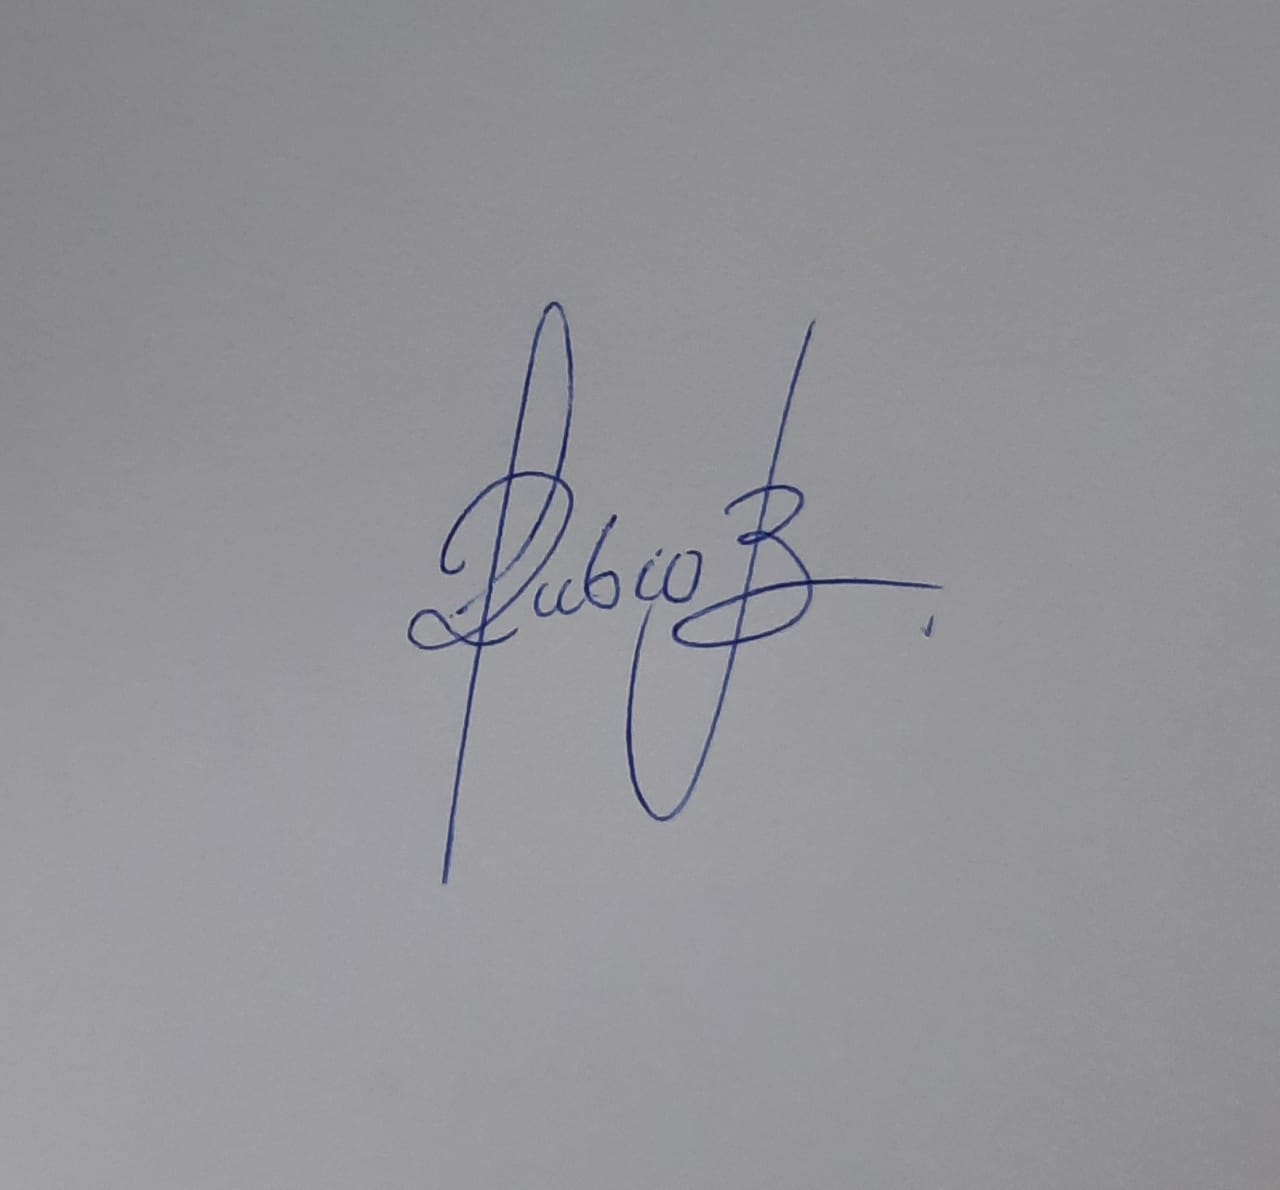 Rubio B.